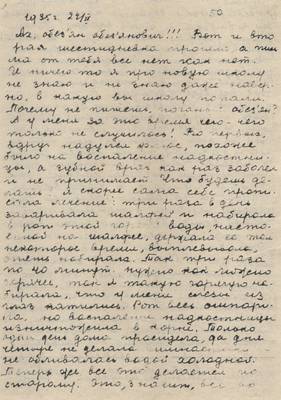 1935г 23/II 50
Ах, обез'ян обез'янович!!! Вот и вто
рая шестидневка прошла а пись
ма от тебя все нет как нет.
И ничего то я про новую школу
не знаю и не знаю даже навер
но, в какую вы школу попали.
Почему не пишешь, обез'ян?
А у меня за это время чего-чего
только не случилось! Во первых,
вдруг надулся похоже
было на воспаление надкостни-
цы, а зубной врач как раз заболел
и не принимает. Что будешь де-
лать я скорее сама себе пропи-
сала лечение: три раза в день
заваривала шалфей и набирала
в рот этой воды, насто-
енной на шалфее, держала ее там
некоторое время, выплевывала,
опять набирала. Так три раза
по 40 минут. Нужно как можно
горячее, так я такую горячую на-
бирала, что у меня слезы из
глаз катились. Рот весь ошпари-
ла, но воспаление надкостницы
изничтожила в корне. Только
один день дома просидела, да дня
четыре не делала
не обливалась водой холодной.
Теперь же все это делается по
старому. Это, значит, все во